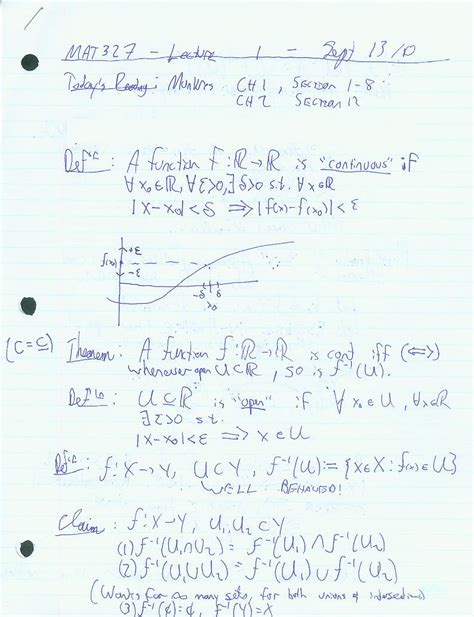 MAT327 - Lecture 1 - Sept 13/10
Today's Reading: Munkres CH1, SECTION 1-8
CH2 SECTION 12
Def'n: A function f:ℝ→ℝ is "continuous" if
∀x₀∈ℝ, ∀ε>0, ∃δ>0 s.t. ∀x∈ℝ
|x-x₀|<δ ⇒ |f(x)-f(x₀)|<ε
+ε
f(x₀)
-ε
-δ δ
x₀
(C=⊆) Theorem: A function f:ℝ→ℝ is cont iff (⇔)
whenever open U⊂ℝ, so is f⁻¹(U).
Def'n: U⊆ℝ is "open" if ∀x₀∈U, ∀x∈ℝ
∃ε>0 s.t.
|x-x₀|<ε ⇒ x∈U
Def'n: f:X→Y, U⊂Y, f⁻¹(U):={x∈X: f(x)∈U}
WELL BEHAVED!
Claim: f:X→Y, U₁,U₂⊂Y
(1) f⁻¹(U₁∩U₂) = f⁻¹(U₁)∩f⁻¹(U₂)
(2) f⁻¹(U₁∪U₂) = f⁻¹(U₁)∪f⁻¹(U₂)
(Works for ∞ many sets, for both unions & intersections)
(3) f⁻¹(∅)=∅, f⁻¹(Y)=X